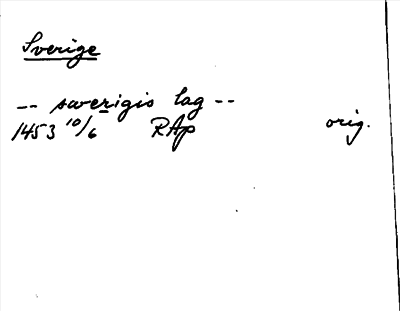 Sverige
-- swerigis lag --
1453 10/6 RAp orig.